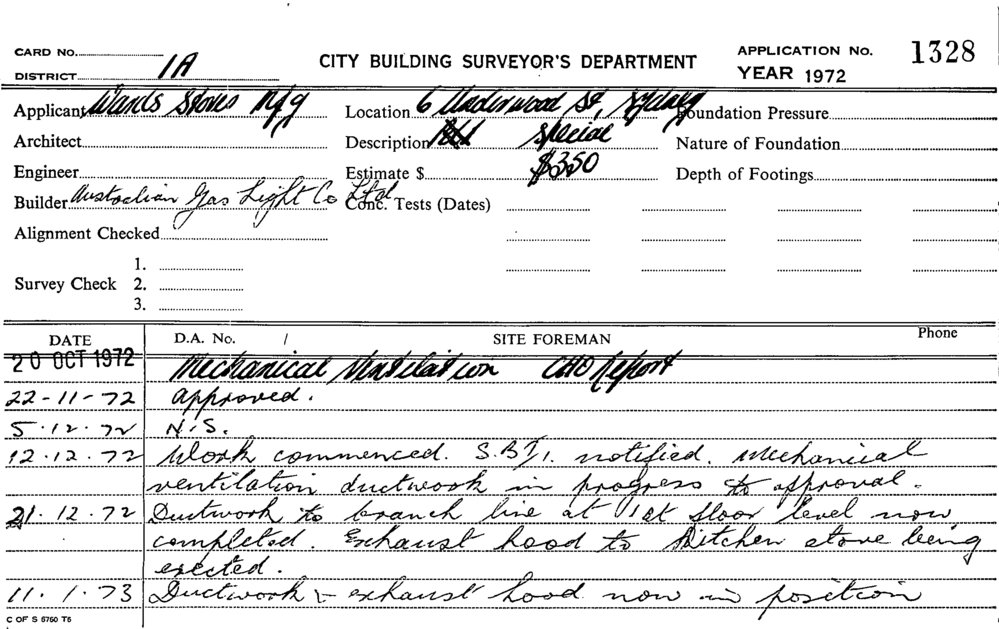 CARD No.
DISTRICT 1A
CITY BUILDING SURVEYOR'S DEPARTMENT
APPLICATION No. 1328
YEAR 1972
Applicant Wands Stoves Mfg
Location 6 Underwood St, Sydney
Foundation Pressure
Architect
Description Special
Nature of Foundation
Engineer
Estimate $ $350
Depth of Footings
Builder Australian Gas Light Co Ltd
Conc. Tests (Dates)
Alignment Checked
Survey Check 1.
2.
3.
DATE D.A. No. / SITE FOREMAN Phone
20 OCT 1972 Mechanical Ventilation CHO Report
22-11-72 approved.
5.12.72 N.S.
12.12.72 Work commenced. S.B.I. notified. Mechanical
ventilation ductwork in progress to approval.
21.12.72 Ductwork to branch line at 1st floor level now
completed. Exhaust hood to kitchen stove being
erected.
11.1.73 Ductwork & exhaust hood now in position
C OF S 5750 T5